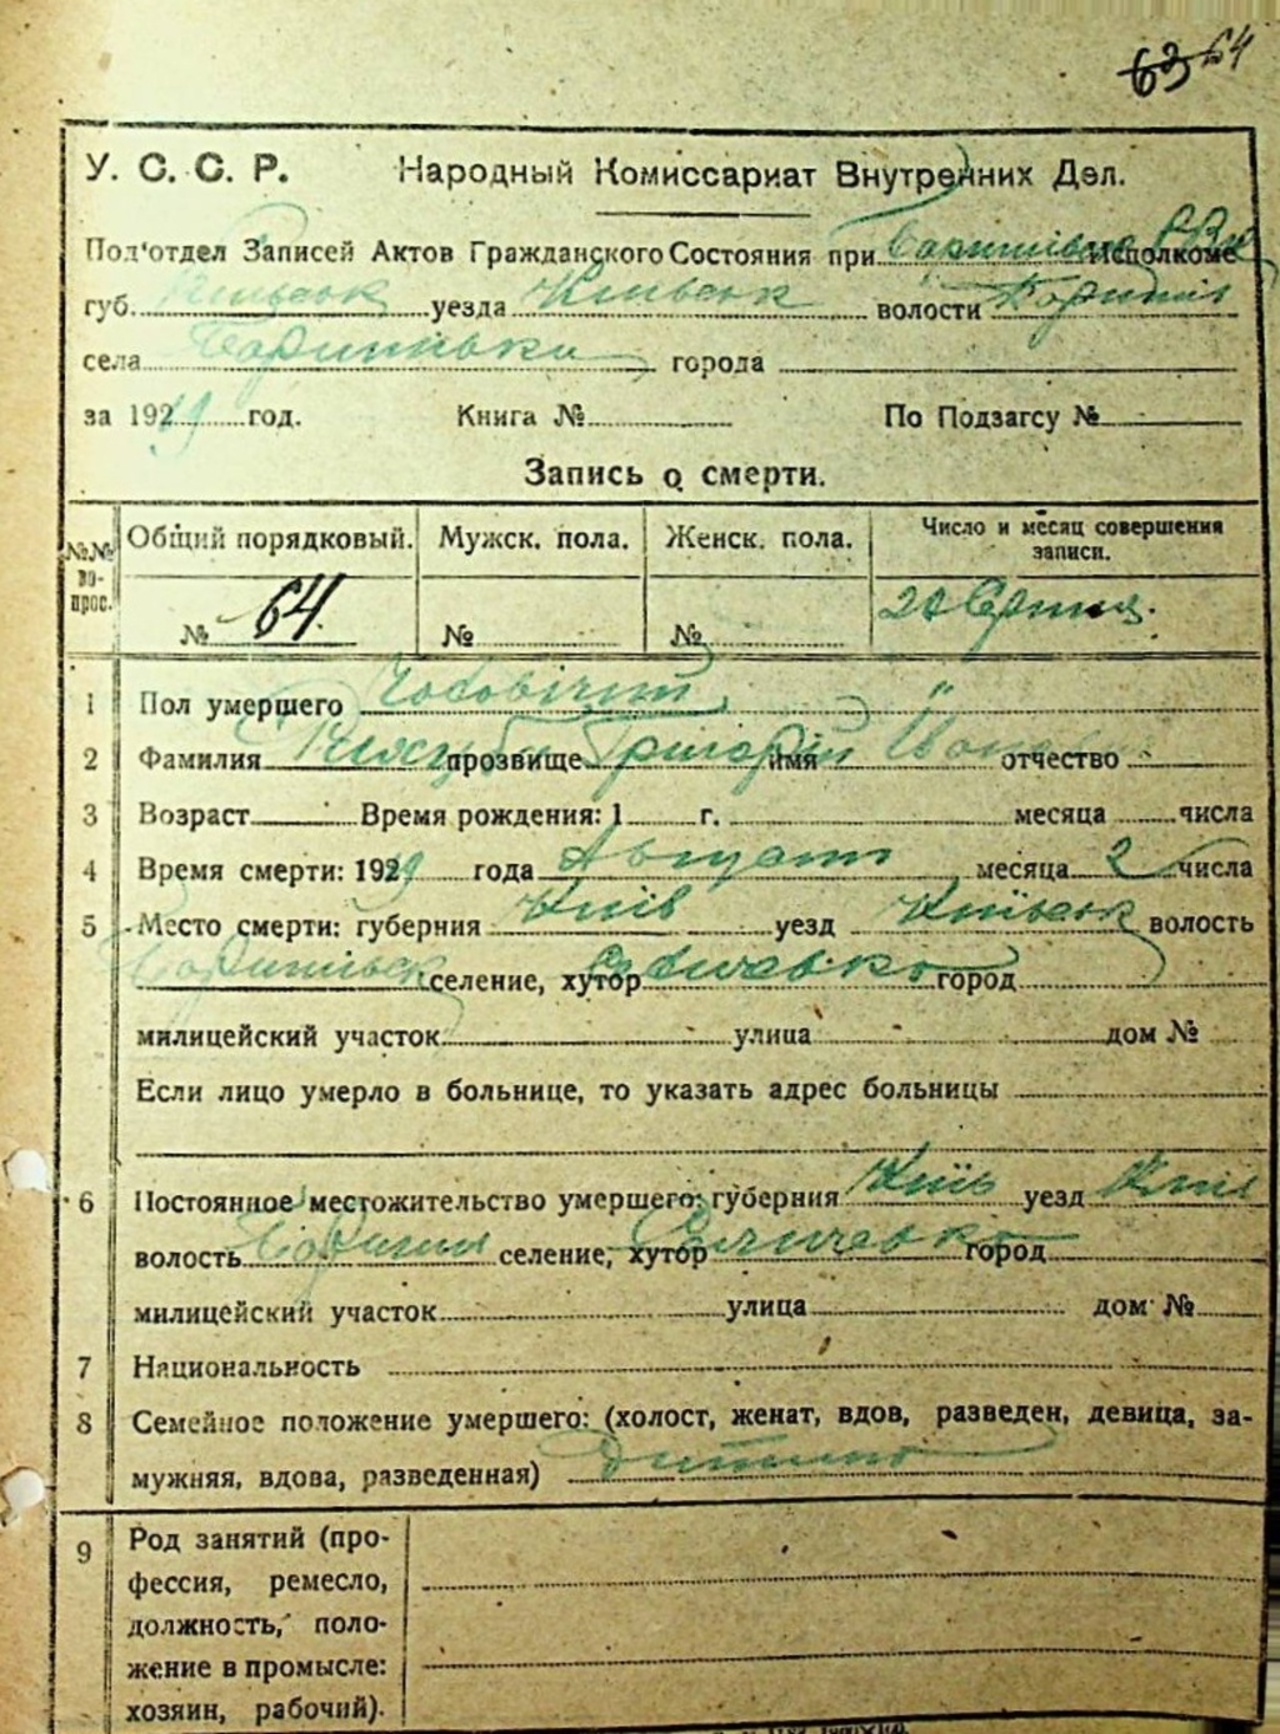 63 64
У. С. С. Р. Народный Комиссариат Внутренних Дел.
Под'отдел Записей Актов Гражданского Состояния при Исполкоме
губ. уезда волости
села города
за 192 9 год. Книга № По Подзагсу №
Запись о смерти.
№№ во-прос. Общий порядковый. Мужск. пола. Женск. пола. Число и месяц совершения записи.
№ 64. № № Серпня.
1 Пол умершего чоловічий
2 Фамилия прозвище Григорій имя отчество
3 Возраст Время рождения: 1 г. месяца числа
4 Время смерти: 1929 года Август месяца 2 числа
5 Место смерти: губерния Київ уезд Київськ волость
селение, хутор город
милицейский участок улица дом №
Если лицо умерло в больнице, то указать адрес больницы
6 Постоянное местожительство умершего: губерния Київ уезд Київ
волость селение, хутор город
милицейский участок улица дом №
7 Национальность
8 Семейное положение умершего: (холост, женат, вдов, разведен, девица, за-
мужняя, вдова, разведенная) Дитина
9 Род занятий (про-
фессия, ремесло,
должность, поло-
жение в промысле:
хозяин, рабочий).